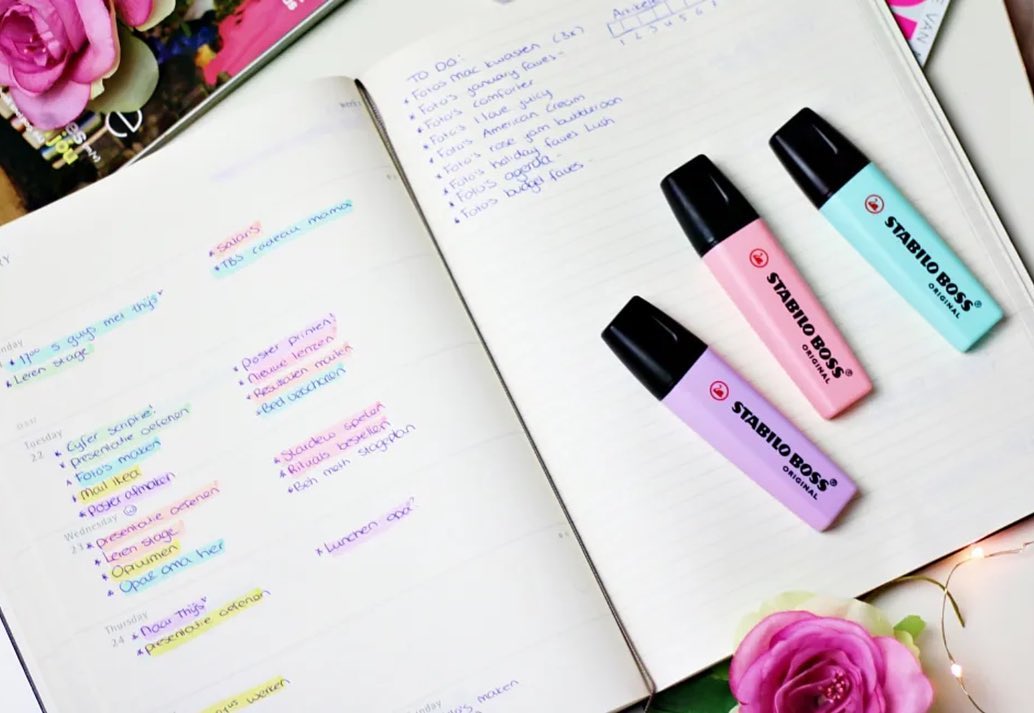 Salaris
TBS cadeau mama
17⁰⁰ 5 guys met Thijs
Leren stage
Poster printen!
Nieuwe lenzen
Resultaten mailen
Bed verschonen
Tuesday
22
Cyfer scriptie!
presentatie oefenen
Foto's maken
Mail ikea
Poster afmaken
Stardew spelen
Rituals bestellen
Wednesday
23
presentatie oefenen
Leren stage
Opruimen
Opa & oma hier
Lunchen opa?
Thursday
24
Naar Thijs
presentatie oefenen
werken
maken
Artikelen
1 2 3 4 5 6 7
TO DO:
Foto's Mac kwasten (3x)
Foto's january faves
Foto's comforter
Foto's I love juicy
Foto's American Cream
Foto's rose jam butteroon
Foto's holiday faves Lush
Foto's agenda
Foto's budget faves
STABILO BOSS®
ORIGINAL
STABILO BOSS®
ORIGINAL
STABILO BOSS®
ORIGINAL